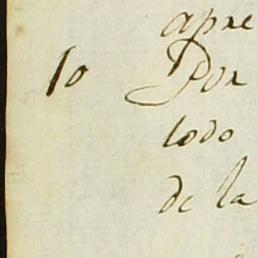 apre
10 Por
todo
de la